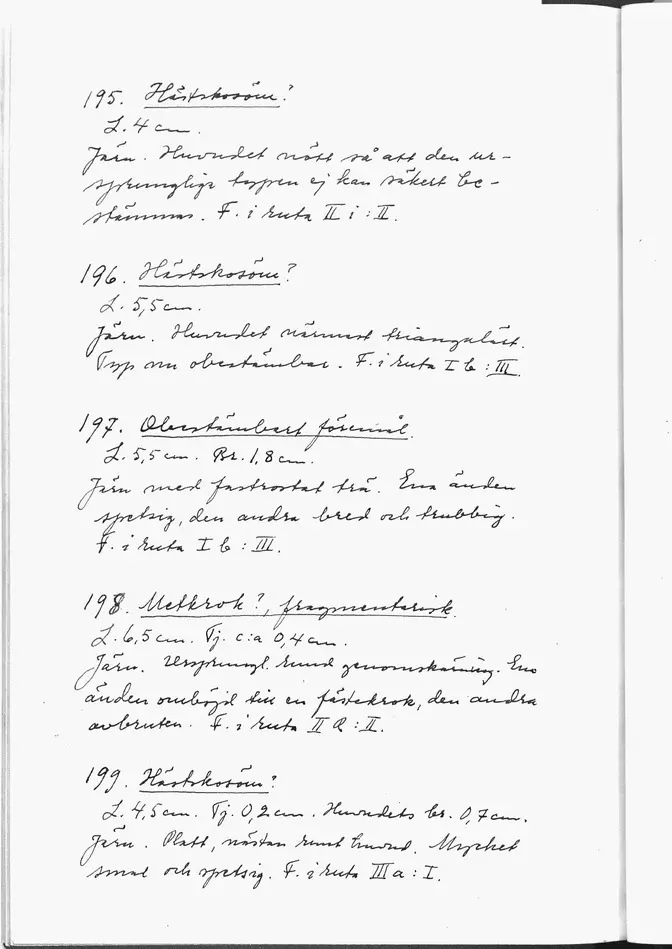 195. Hästskosöm?
L. 4 cm.
Järn. Huvudet nött så att den ur-
sprungliga typen ej kan säkert be-
stämmas. F. i ruta II i : II.
196. Hästskosöm?
L. 5,5 cm.
Järn. Huvudet närmast triangulärt.
Typ nu obestämbar. F. i ruta I b : III.
197. Obestämbart föremål.
L. 5,5 cm. Br. 1,8 cm.
Järn med fastrostat trä. Ena änden
spetsig, den andra bred och trubbig.
F. i ruta I b : III.
198. Metkrok?, fragmentarisk.
L. 6,5 cm. Tj. c:a 0,4 cm.
Järn. Ursprungl. rund genomskärning. Ena
änden omböjd till en fästekrok, den andra
avbruten. F. i ruta II l : II.
199. Hästskosöm?
L. 4,5 cm. Tj. 0,2 cm. Huvudets br. 0,7 cm.
Järn. Platt, nästan runt huvud. Mycket
smal och spetsig. F. i ruta III a : I.